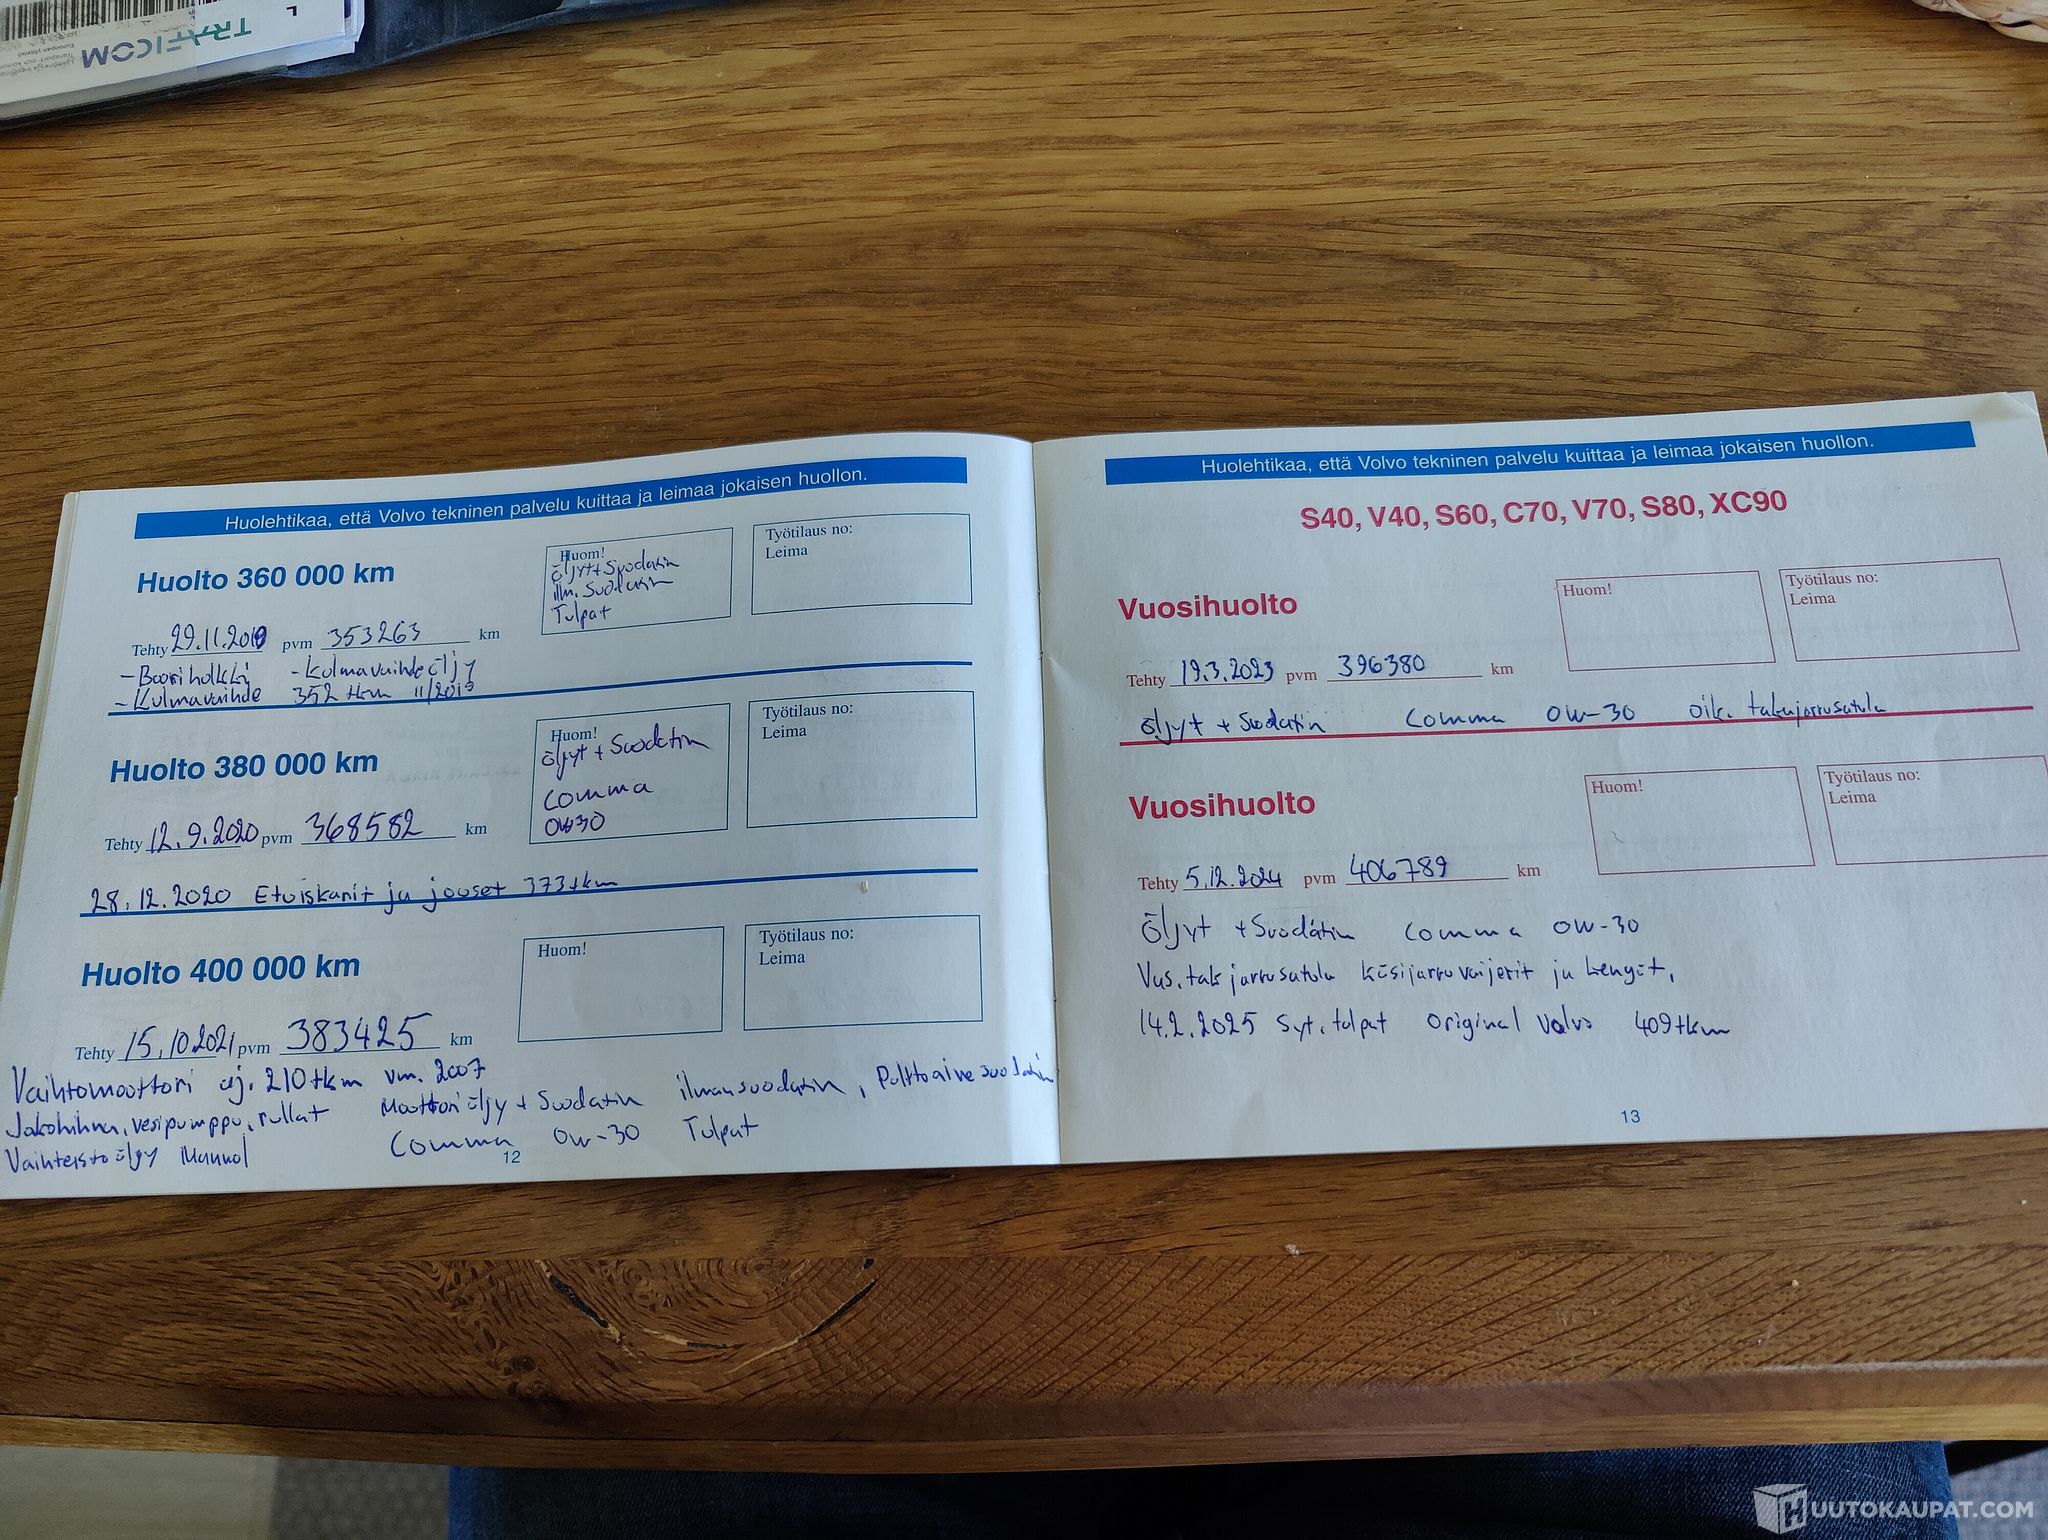 TRAFICOM
L
Huolehtikaa, että Volvo tekninen palvelu kuittaa ja leimaa jokaisen huollon.
Huolto 360 000 km
Huom!
öljyt+Suodatin
ilm. Suodatin
Tulpat
Työtilaus no:
Leima
Tehty 29.11.2019 pvm 353263 km
- Booriholkki - Kulmavaihdeöljy
- Kulmavaihde 352 tkm 11/2019
Huolto 380 000 km
Huom!
öljyt + Suodatin
Comma
0W30
Työtilaus no:
Leima
Tehty 12.9.2020 pvm 368582 km
28.12.2020 Etuiskarit ja jouset 373tkm
Huolto 400 000 km
Huom!
Työtilaus no:
Leima
Tehty 15.10.2021 pvm 383425 km
Vaihtomoottori aj. 210tkm vm. 2007
Jakohihna, vesipumppu, rullat Moottoriöljy + Suodatin ilmansuodatin, Polttoainesuodatin
Vaihteistoöljy Mannol Comma 0w-30 Tulpat
12
Huolehtikaa, että Volvo tekninen palvelu kuittaa ja leimaa jokaisen huollon.
S40, V40, S60, C70, V70, S80, XC90
Vuosihuolto
Huom!
Työtilaus no:
Leima
Tehty 19.3.2023 pvm 396380 km
Öljyt + Suodatin Comma 0W-30 oik. takajarrusatula
Vuosihuolto
Huom!
Työtilaus no:
Leima
Tehty 5.12.2024 pvm 406789 km
Öljyt + Suodatin Comma 0W-30
Vas. tak jarrusatula käsijarruvaijerit ja kengät,
14.2.2025 Syt. tulpat Original Volvo 409tkm
13
HUUTOKAUPAT.COM